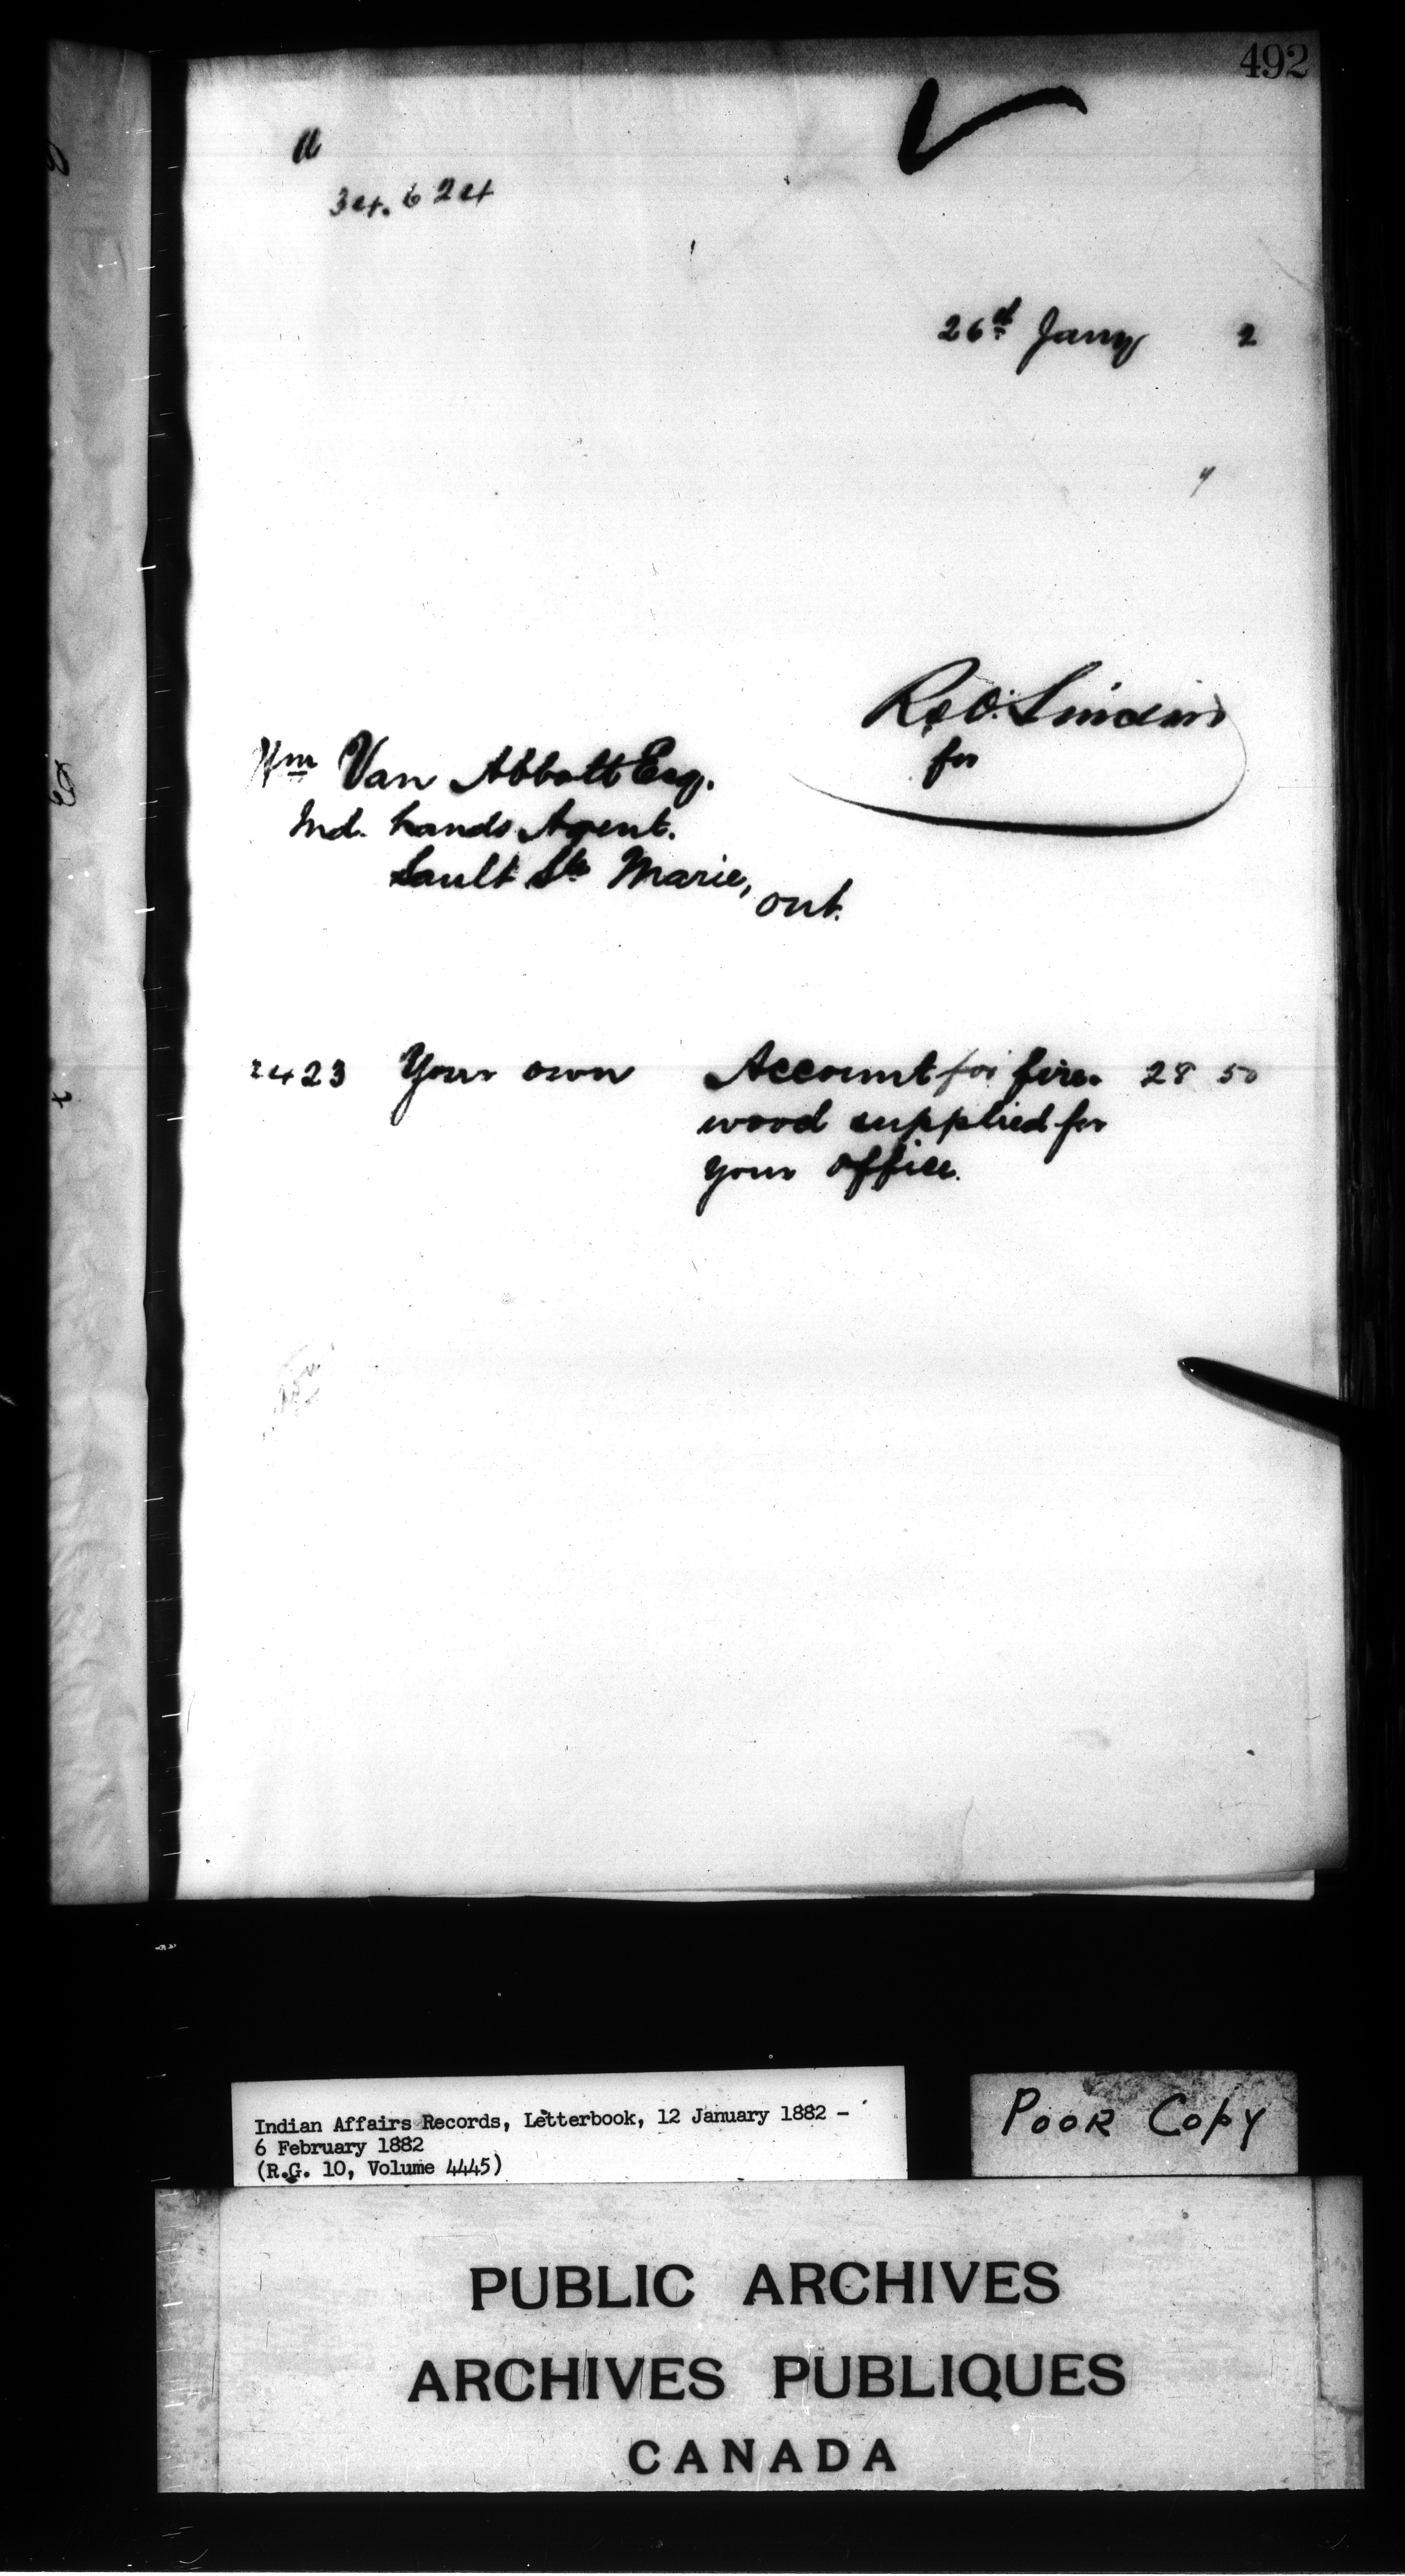 492
26th Jany 2
for
Wm Van Abbott Esq.
Ind. Lands Agent.
Sault Ste Marie,
Ont.
2423 Your own Account for fire- 28 50
wood supplied for
your office.
Indian Affairs Records, Letterbook, 12 January 1882 -
6 February 1882
(R.G. 10, Volume 4445)
POOR COPY
PUBLIC ARCHIVES
ARCHIVES PUBLIQUES
CANADA